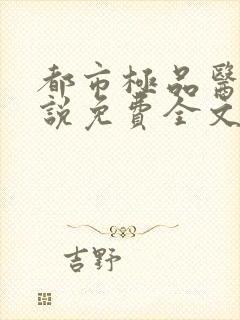 都市極品醫
說免費全文
吉野